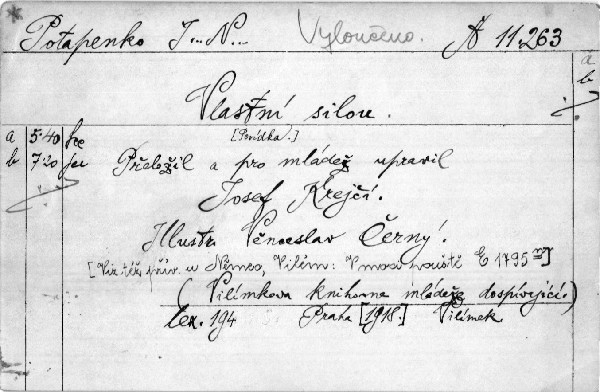 Potapenko I... N... Vyloučeno. A 11.263
a
b
Vlastní silou.
[Povídka.]
a 5·40
b 7·20
Přeložil a pro mládež upravil
Josef Krejčí.
Illustr. Věnceslav Černý.
[Viz též přív. u Němec, Vilém: V moci pouště E 1795
(Vilímkova knihovna mládeže dospívající.)
lex. 194 Praha [1918.] Vilímek